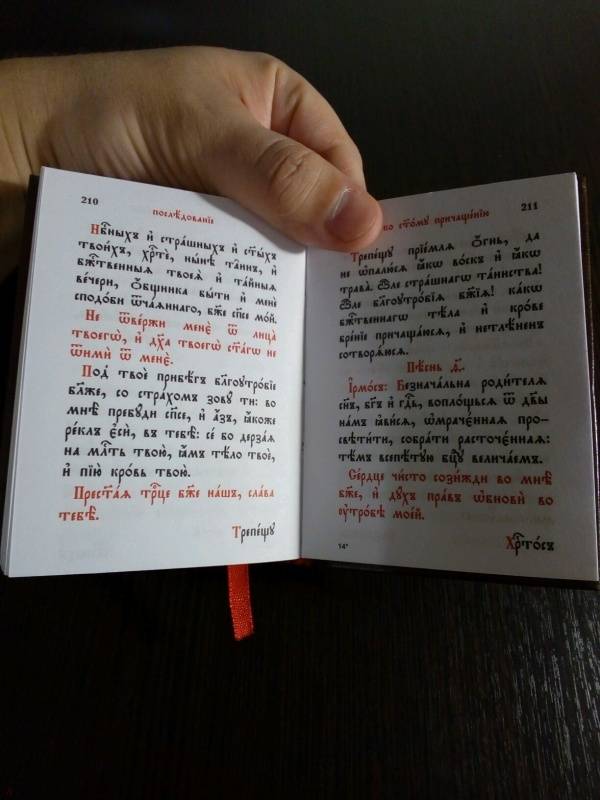 210
послѣ́дованїе
Нбⷭ҇ныхъ и҆ стра́шныхъ и҆ ст҃ы́хъ
твои́хъ, хрⷭ҇тѐ, ны́нѣ та̑инъ, и҆
бж҃твенныѧ твоеѧ̀ и҆ та́йныѧ
ве́чери, ѻ҆́бщника бы́ти и҆ менѐ
сподо́би ѿча́ѧннаго, бж҃е сп҃се мо́й.
Не ѿве́ржи менє̀ ѿ лица̀
твоегѡ̀, и҆ дх҃а твоегѡ̀ ст҃а́гѡ не
ѿимѝ ѿ менє̀.
Под̾ твоѐ прибѣ́гъ бл҃гоꙋтро́бїе
бл҃же, со стра́хомъ зовꙋ́ ти: во
мнѣ̀ пребꙋ́ди сп҃се, и҆ а҆́зъ, ꙗ҆́коже
ре́клъ є҆сѝ, въ тебѣ̀: се́ бо дерза́ѧ
на млⷭ҇ть твою̀, ꙗ҆́мъ тѣ́ло твоѐ,
и҆ пїю̀ кро́вь твою̀.
Прест҃а́ѧ трⷪ҇це бж҃е на́шъ, сла́ва
тебѣ̀.
Трепе́щꙋ
ко ст҃о́мꙋ причаще́нїю
211
Трепе́щꙋ прїе́млѧ ѻ҆́гнь, да
не ѡ҆палю́сѧ ꙗ҆́кѡ во́скъ и҆ ꙗ҆́кѡ
трава̀. Ѽле стра́шнагѡ та́инства!
Ѽле бл҃гоꙋтро́бїѧ бж҃їѧ! ка́кѡ
бж҃твеннагѡ тѣ́ла и҆ кро́ве
бре́нїе причаща́юсѧ, и҆ нетлѣ́ненъ
сотворѧ́юсѧ.
Пѣ́снь ѧ҃.
І҆рмо́съ: Безнача́льна роди́телѧ
сн҃ъ, бг҃ъ и҆ гдⷭ҇ь, вопло́щьсѧ ѿ дв҃ы
на́мъ ꙗ҆ви́сѧ, ѡ҆мраче́ннаѧ про-
свѣти́ти, собра́ти расточе́ннаѧ:
тѣ́мъ всепѣ́тꙋю бцⷣꙋ велича́емъ.
Се́рдце чи́сто сози́жди во мнѣ̀
бж҃е, и҆ дꙋ́хъ пра́въ ѡ҆бновѝ во
ᲂу҆тро́бѣ мое́й.
14*
Хрⷭ҇то́съ